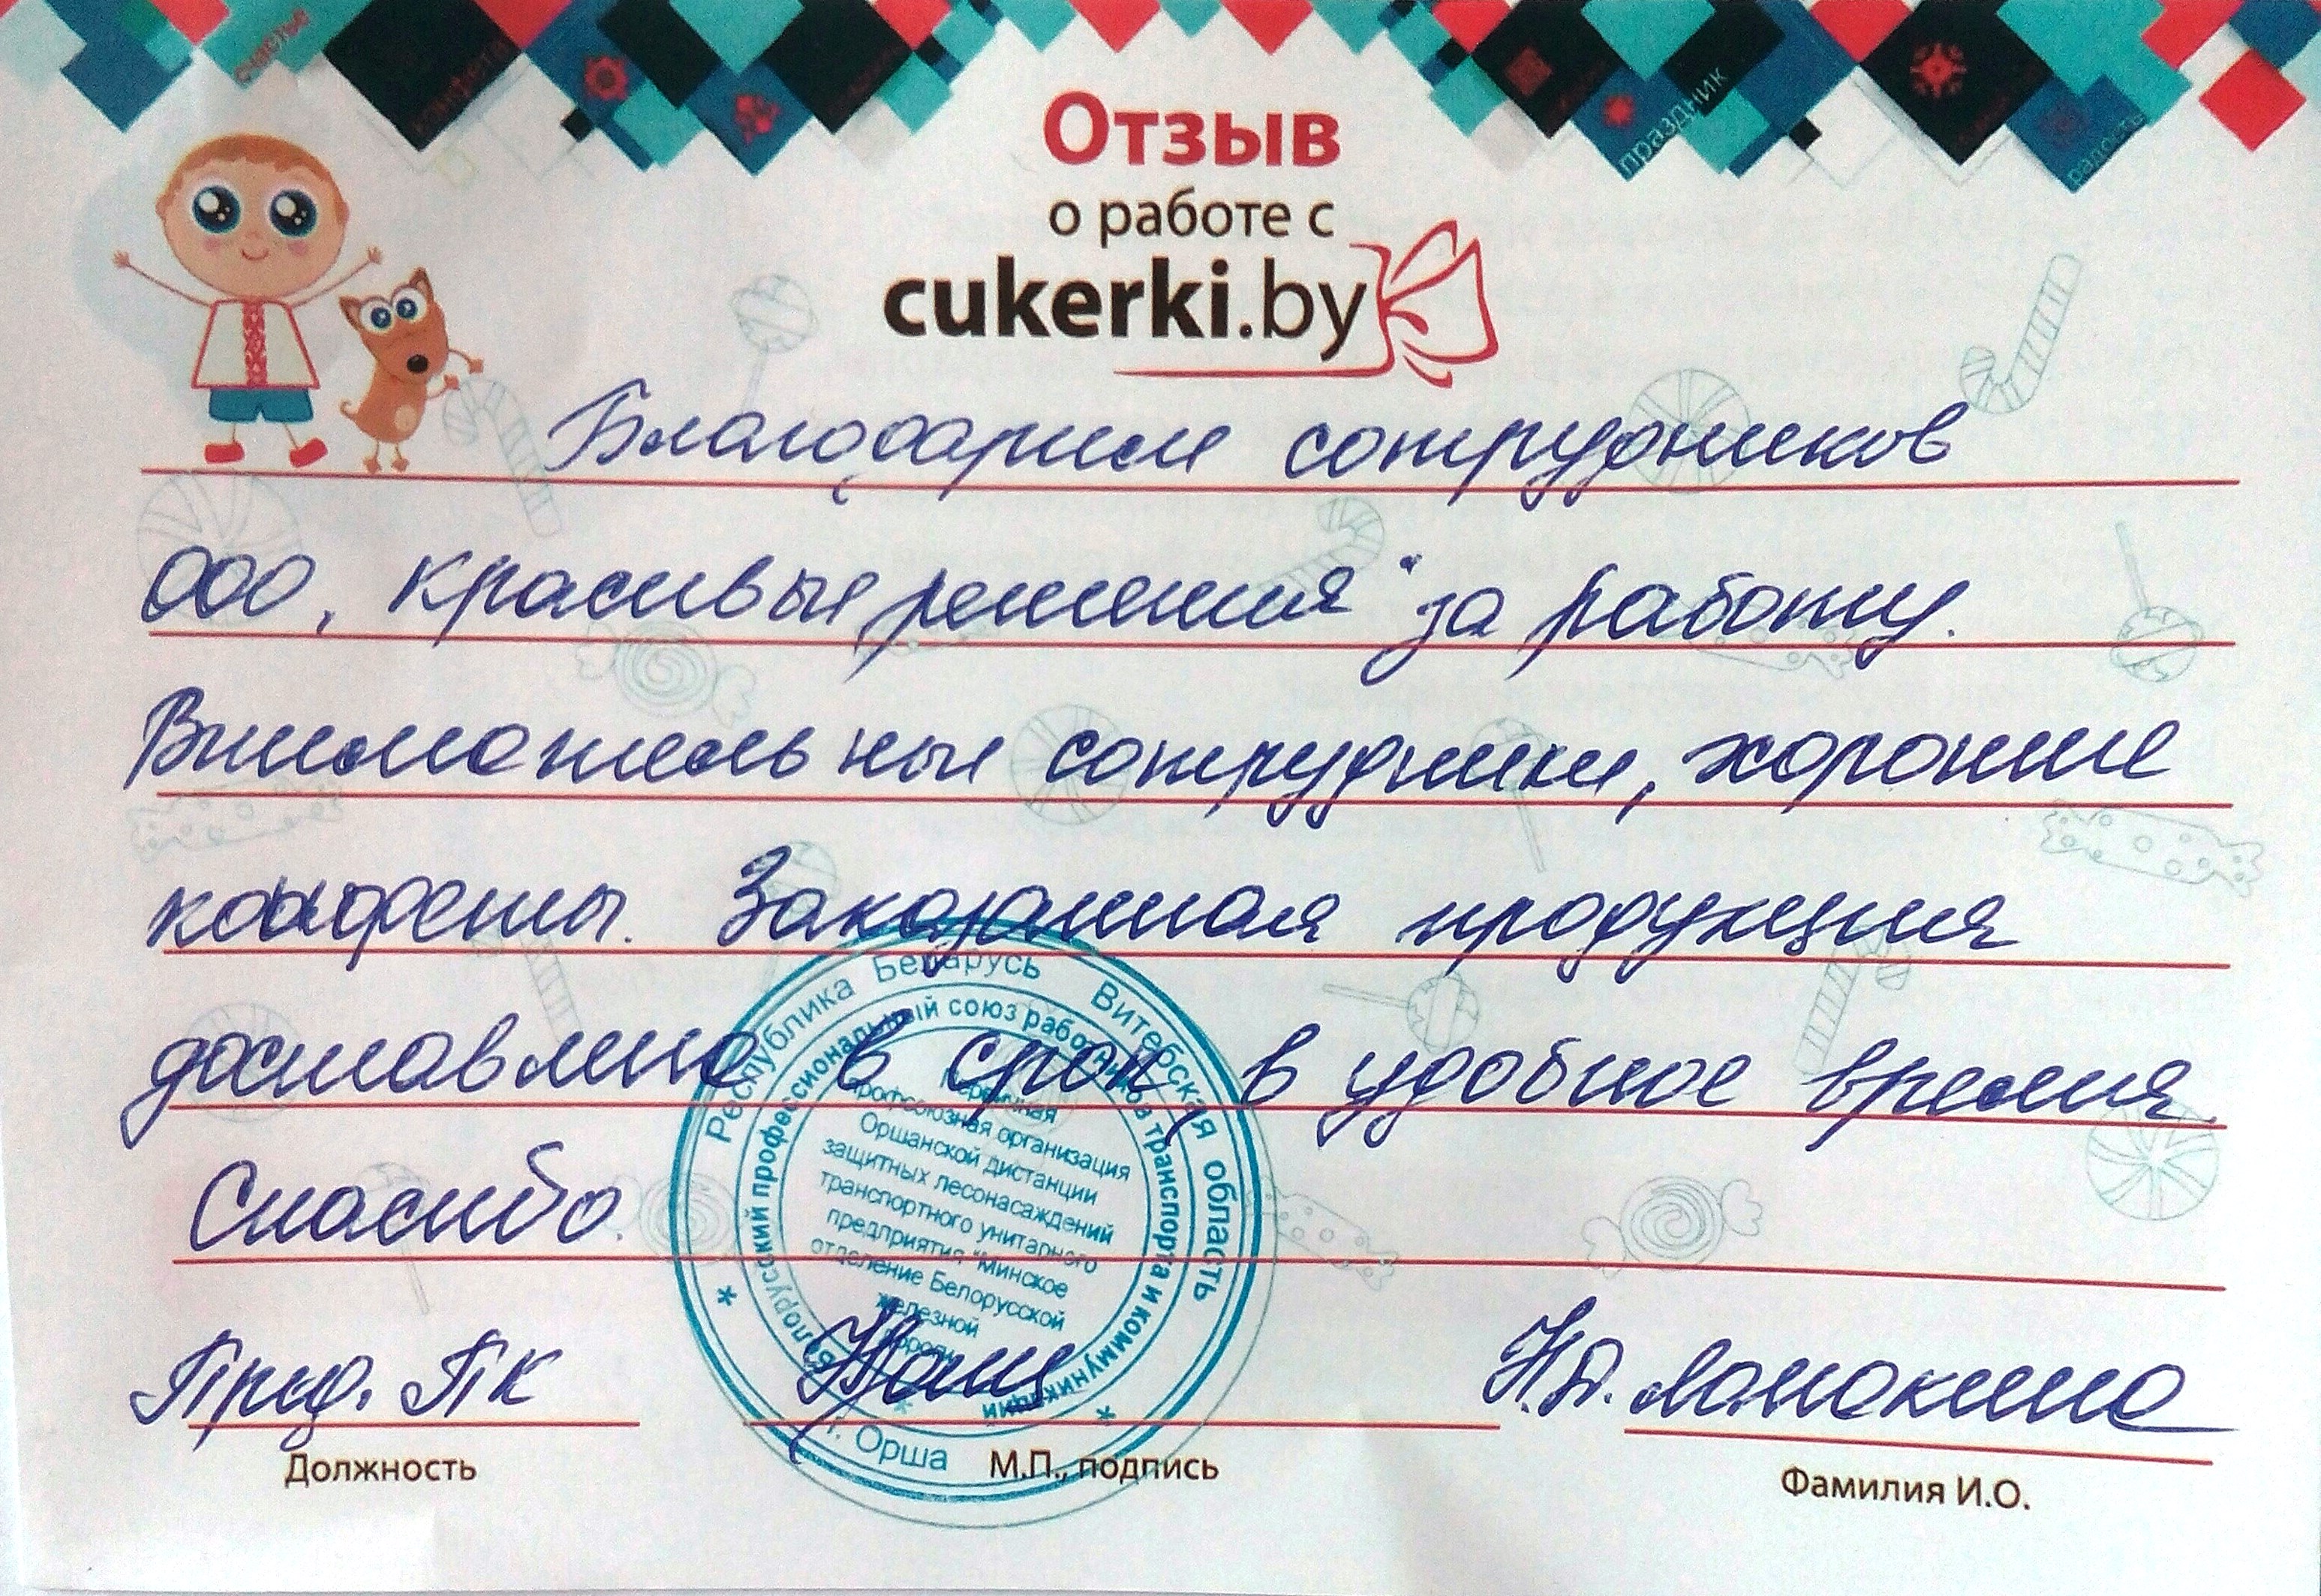 счастье
конфета
праздник
радость
Отзыв
о работе с
cukerki.by
Благодарим сотрудников
ООО „Красивые решения" за работу.
Внимательные сотрудники, хорошие
конфеты. Заказанная продукция
доставлена в срок, в удобное время.
Спасибо.
Республика Беларусь Витебская область
Белорусский профессиональный союз работников транспорта и коммуникаций
Первичная
профсоюзная организация
Оршанской дистанции
защитных лесонасаждений
транспортного унитарного
предприятия "Минское
отделение Белорусской
железной
дороги"
г. Орша
Пред. ПК
Должность
М.П., подпись
Фамилия И.О.